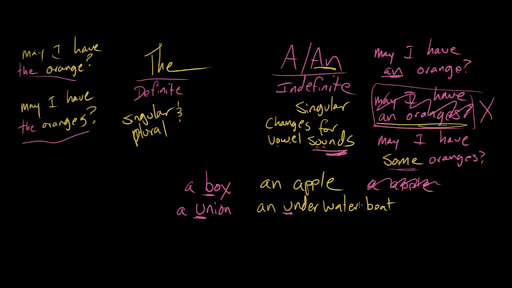 may I have
the orange?
may I have
the oranges?
The
Definite
singular &
plural
A/An
Indefinite
Singular
Changes for
vowel sounds
may I have
an orange?
may I have
an oranges?
X
may I have
some oranges?
a box
an apple
a apple
a union
an underwater boat